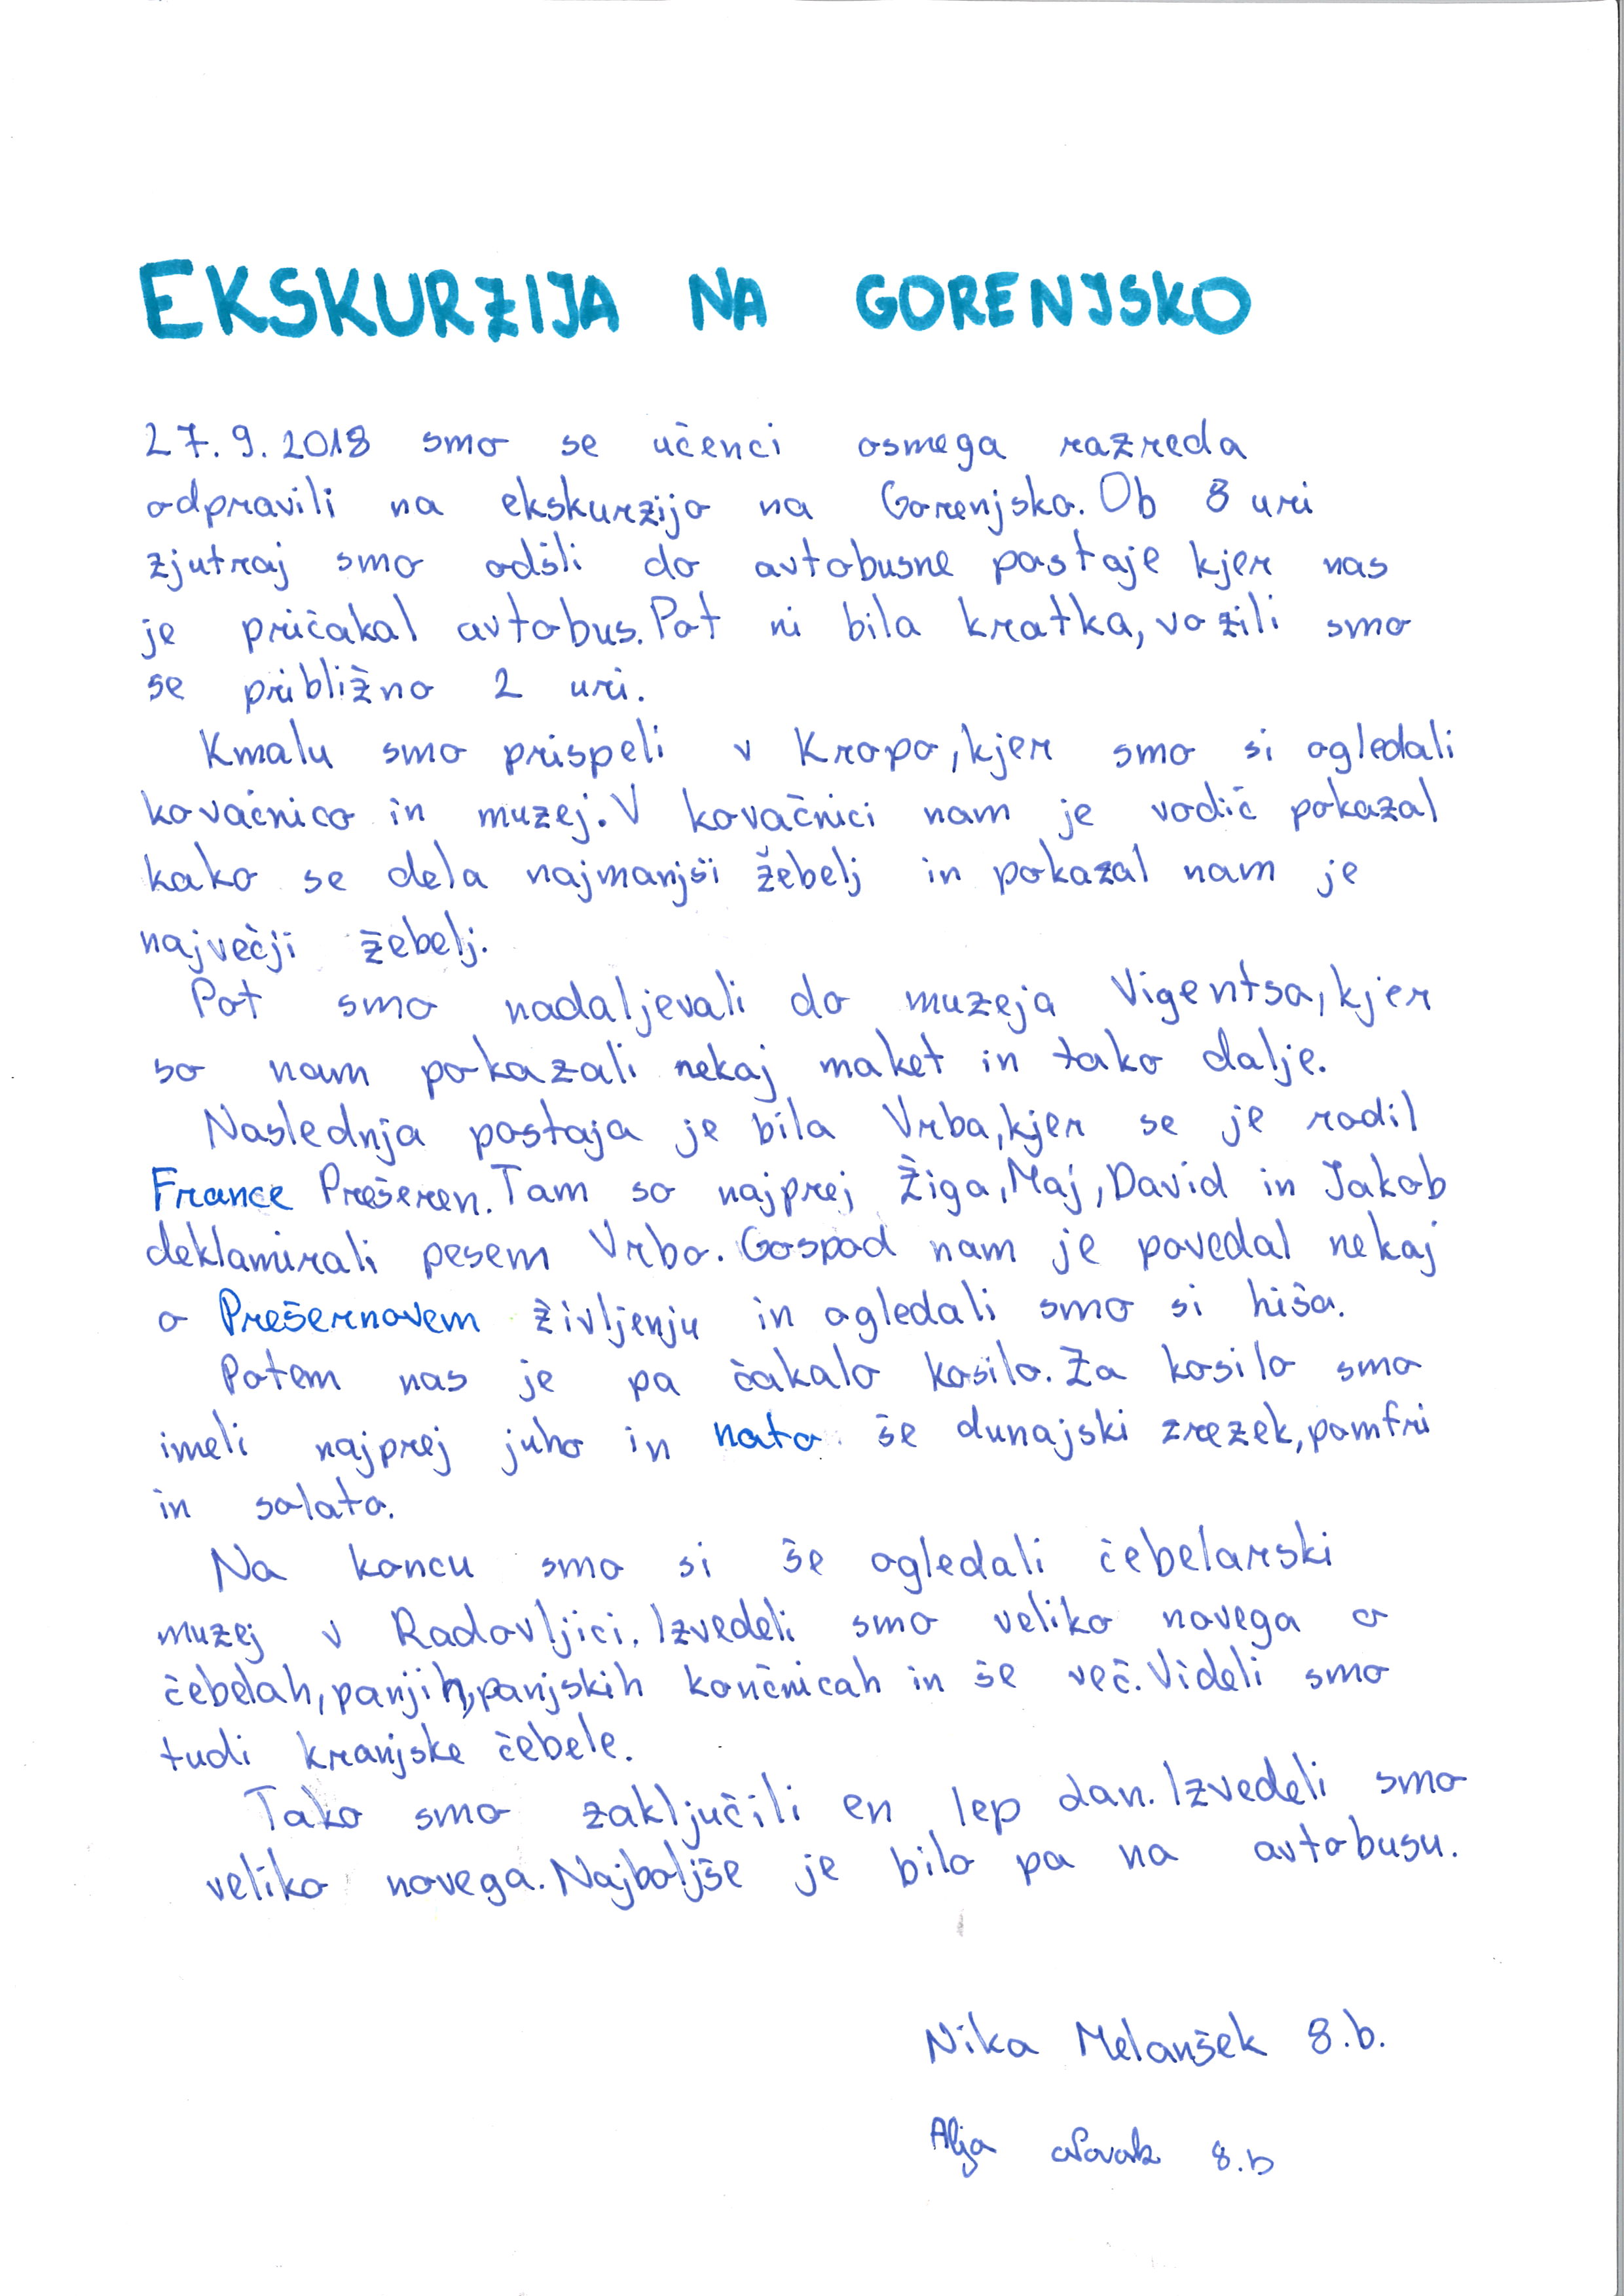 EKSKURZIJA NA GORENJSKO
27.9.2018 smo se učenci osmega razreda
odpravili na ekskurzijo na Gorenjsko. Ob 8 uri
zjutraj smo odšli do avtobusne postaje kjer nas
je pričakal avtobus. Pot ni bila kratka, vozili smo
se približno 2 uri.
Kmalu smo prispeli v Kropo, kjer smo si ogledali
kovačnico in muzej. V kovačnici nam je vodič pokazal
kako se dela najmanjši žebelj in pokazal nam je
največji žebelj.
Pot smo nadaljevali do muzeja Vigentsa, kjer
so nam pokazali nekaj maket in tako dalje.
Naslednja postaja je bila Vrba, kjer se je rodil
France Prešeren. Tam so najprej Žiga, Maj, David in Jakob
deklamirali pesem Vrbo. Gospod nam je povedal nekaj
o Prešernovem življenju in ogledali smo si hišo.
Potem nas je pa čakalo kosilo. Za kosilo smo
imeli najprej juho in nato še dunajski zrezek, pomfri
in solato.
Na koncu smo si še ogledali čebelarski
muzej v Radovljici. Izvedeli smo veliko novega o
čebelah, panjih, panjskih končnicah in še več. Videli smo
tudi kranjske čebele.
Tako smo zaključili en lep dan. Izvedeli smo
veliko novega. Najboljše je bilo pa na avtobusu.
Nika Melanšek 8.b.
Alja Novak 8.b